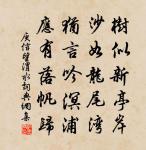 樹似新亭岸
沙如龍尾灣
猶言吟溟浦
應有落帆歸
庾信望渭水詞典網集